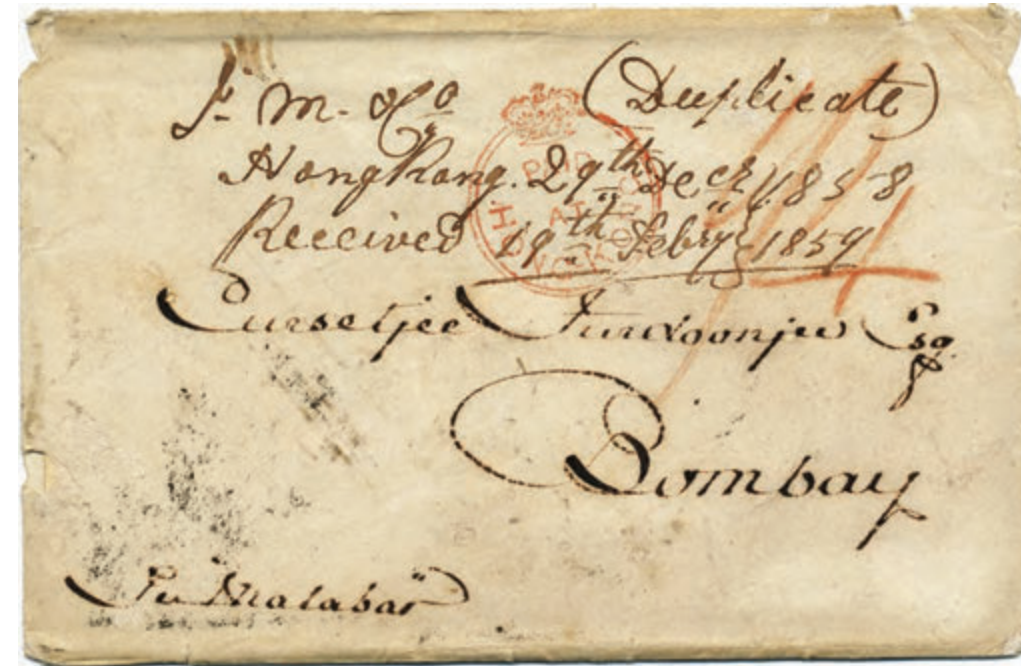 F. M. & Co (Duplicate)
HongKong. 29th Decr 1858
Received 19th Febry 1859
PAID AT HONG KONG
Cursetjee Furdoonjee Esqr
Bombay
Per "Malabar"